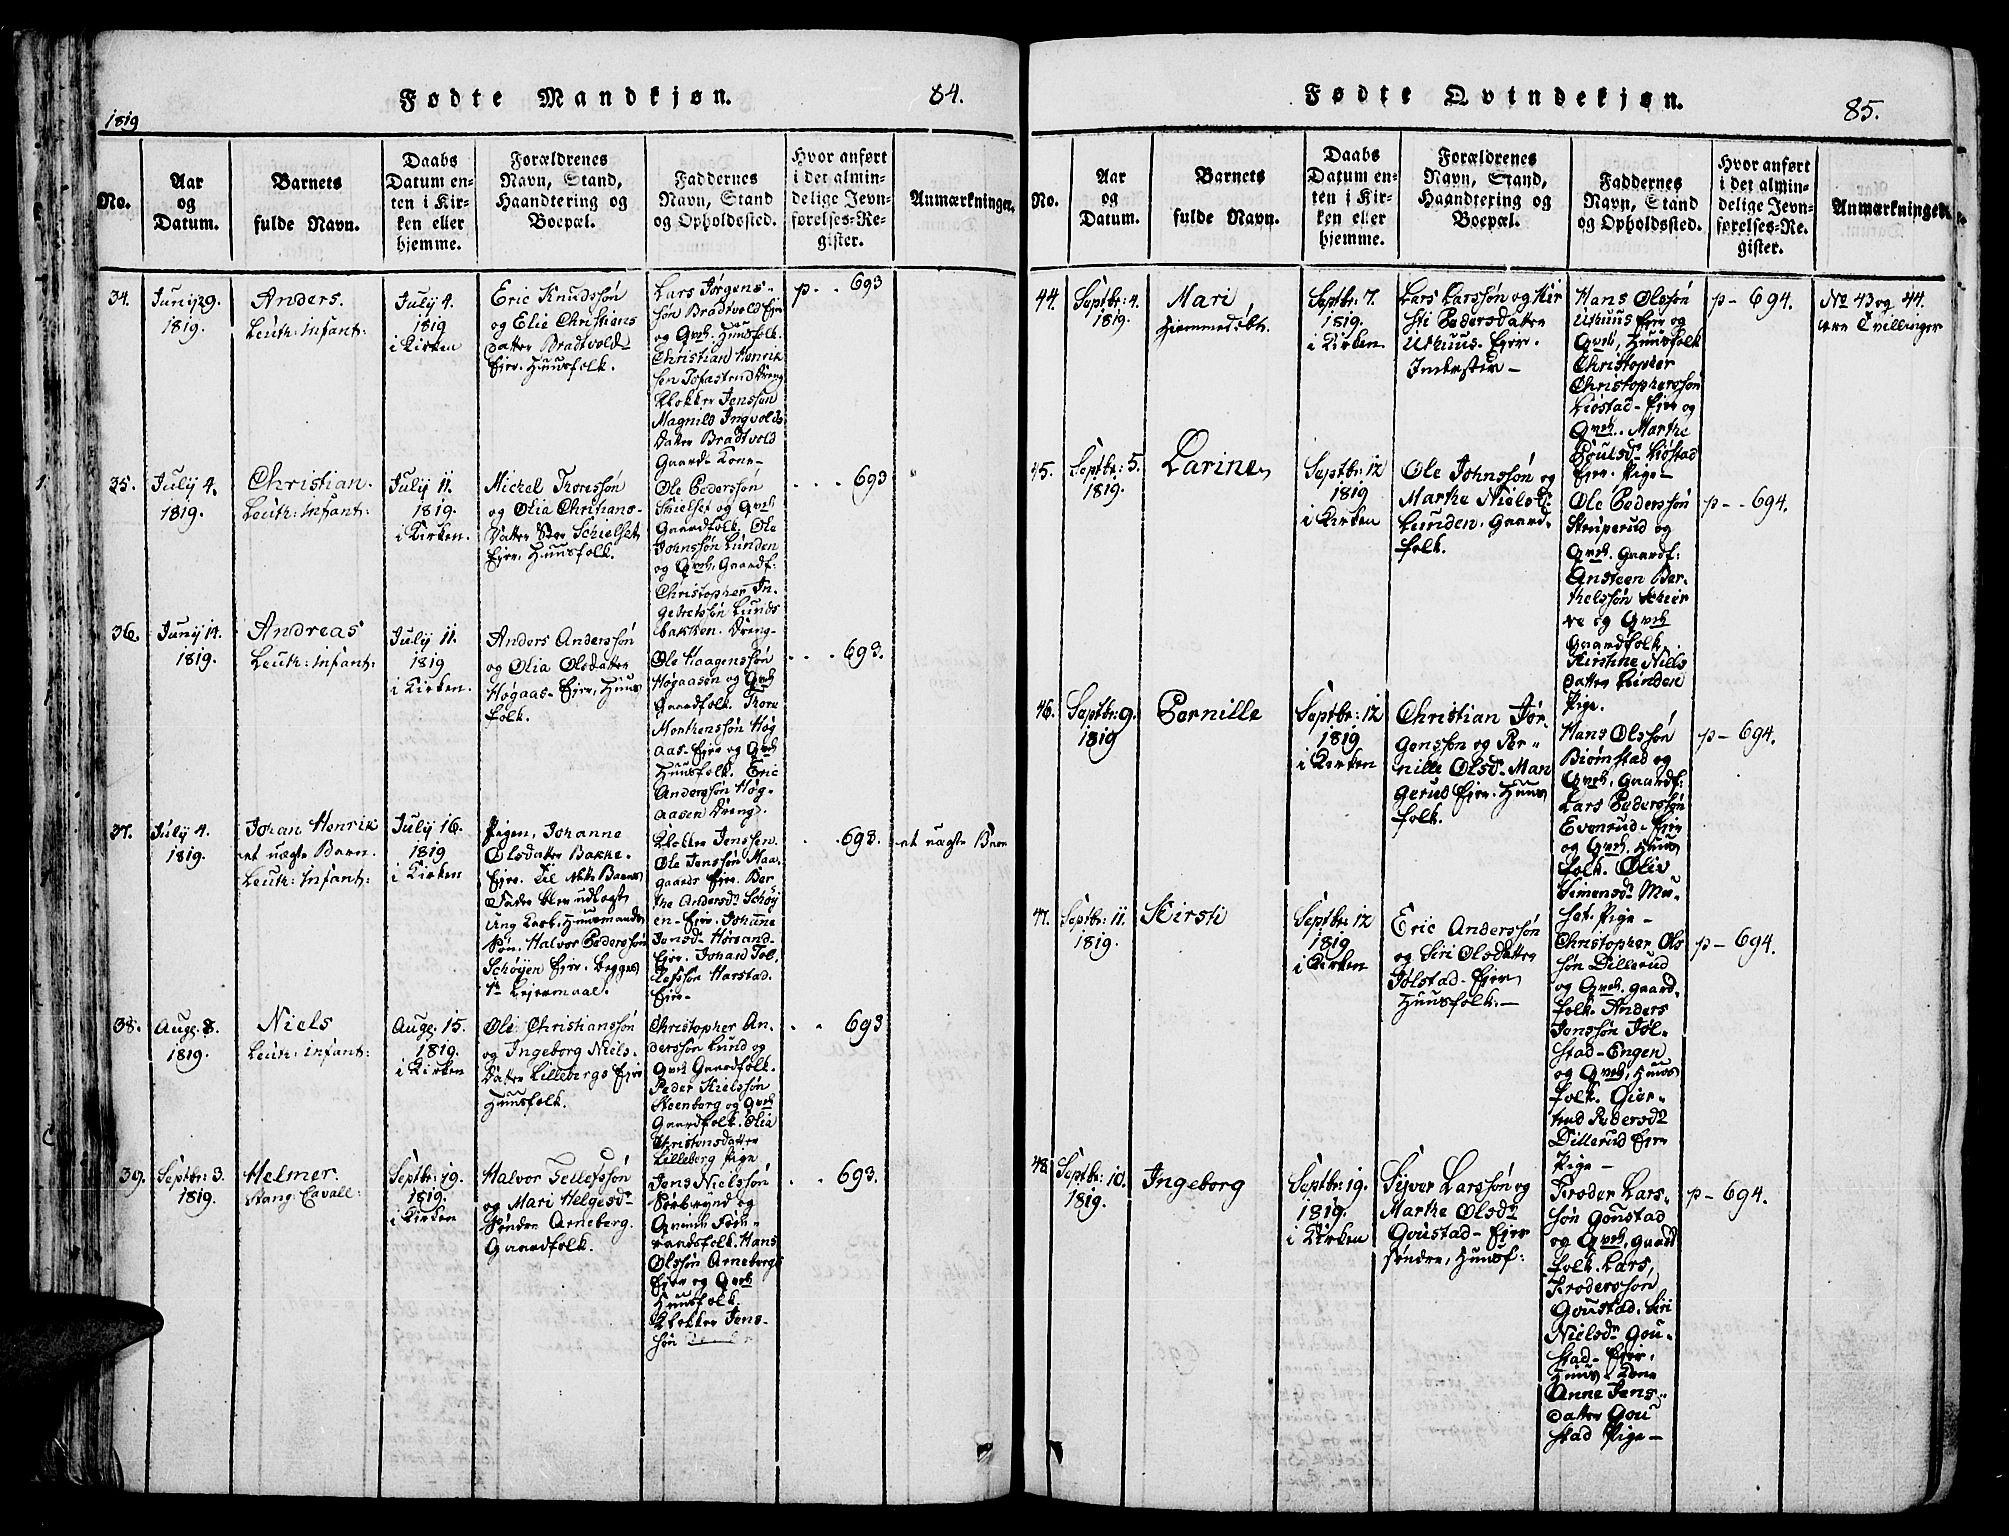 1819
Fødte Mandkjøn.
84.
No.
Aar
og
Datum.
Barnets
fulde Navn.
Daabs
Datum en-
ten i Kir-
ken eller
hjemme.
Forældrenes
Navn, Stand,
Haandtering og
Boepæl.
Faddernes
Navn, Stand
og Opholdssted.
Hvor anført
i det almin-
delige Jevn-
førelses-Re-
gister.
Anmærkninger.
34.
Junij 29.
1819.
Anders.
Leuth: infant:
July 4.
1819
i Kirken
Eric Knudssøn
og Elie Christians
datter Bradtvold
Ejer. Huusfolk.
Lars Jørgens-
søn Bradtvold Ejer
og Qvek. Huusfolk.
Christian Henrik
sen Tofastrud Dreng
Klokker Jenssøn
Magnild Ingvolds
datter Bradtvold
Gaard-Kone-
p - . 693
35.
July 4.
1819.
Christian.
Leuth: infant:
July 11.
1819.
i Kirken.
Michel Thoressøn
og Olia Christians-
datter Søer Schielset
Ejer, Huusfolk.
Ole Pedersson
Skielset og Qvek
Gaardfolk. Ole
Johnssøn Lunden
og Qvek, Gaardf:
Christopher In-
gebretssøn Lunds
bakken. Dreng-
. . . 693
36.
Junij 14.
1819.
Andreas
Leuth: infant:
July 11.
1819
i Kirken.
Anders Anderssøn
og Olia Olsdatter
Høgaas- Ejer, Huus
folk.
Ole Haagenssøn
Høgaasen og Qvek
Gaardfolk. Thore
Morthenssøn Høg
aas- Ejer og Qvek
Huusfolk. Eric
Anderssøn Høg-
aasen Dreng.
. . . 693.
37.
July 4.
1819.
Johan Henrik
et uægte Barn.
Leuth: infant:
July 16.
1819
i Kirken
Pigen, Johanne
Olsdatter Bakke.
Ejer. Til dette Barns
Fader blev udlagt
Ung Karl, Huusmands
Søn, Halvor Pederssøn
Schøyen Ejer. begges
1te Lejermaal.
Klokker Jenssen.
Ole Jenssøn Maa-
gaard Ejer. Ber
the Andersd. Schøy
en- Ejer. Johanne
Jonsd. Hørsand-
Ejer. Johan Tol,
lefssøn Harstad.
Ejer-
. . 693.
et uægte Barn
38.
Aug. 8.
1819.
Niels
Leuth: infant:
Aug. 15.
1819.
i Kirken
Ole Christianssøn
og Ingeborg Niels-
datter Lillebergs Ejer
Huusfolk.
Christopher An-
derssøn Lund og
Qvek Gaardfolk.
Peder Kielssøn
Steenborg og Qvek
Gaardfolk. Olia
Christensdatter
Lilleberg Pige
. . 693
39.
Septbr: 3.
1819.
Helmer.
Stang: Cavall:
Septbr: 19.
1819.
i Kirken
Halvor Tellefssøn
og Mari Helgesd.
Søndre Arneberg.
Gaardfolk.
Jens Nielssøn
Sørbrynd og
Qvinde Føde-
raadsfolk. Hans
Olssøn Arneberg
Ejer og Qvek
Huusfolk.
Klokker Jens-
søn
. . 693.
Fødte Qvindekjøn.
85.
No.
Aar
og
Datum.
Barnets
fulde Navn.
Daabs
Datum en-
ten i Kir-
ken eller
hjemme.
Forældrenes
Navn, Stand,
Haandtering og
Boepæl.
Faddernes
Navn, Stand
og Opholdssted.
Hvor anført
i det almin-
delige Jevn-
førelses-Re-
gister.
Anmærkninger.
44.
Septbr: 4.
1819.
Mari
Hiemmedøbt.
Septbr: 7.
1819.
i Kirken
Lars Larssøn og Kir
sti Pedersdatter
Ukuus. Ejer.
Inderster-
Hans Olssøn
Ukuus Ejer og
Qvek, Huusfolk
Christopher
Christopherssøn
Liøstad- Ejer og
Qvek. Marthe
Poulsd. Liøstad
Ejer. Pige-
p- 694.
No 43 og 44.
ere Tvillinger
45.
Septbr: 5.
1819.
Karine
Septbr: 12
1819
i Kirken
Ole Johnssøn og
Marthe Nielsd.
Lunden. Gaard-
folk.
Ole Pederssøn
Struperud og
Qvek. Gaardf:
Ansteen Ber-
thelssøn Scheer
re og Qvek
Gaardfolk
Kirstine Niels
datter Lunden
Pige.
p-- 694.
46.
Septbr: 9.
1819
Pernille
Septbr: 12
1819
i Kirken
Christian Jør-
genssøn og Per-
nille Olsd. Man
gerud Ejer. Huus
folk.
Hans Olssøn
Biørnstad og
Qvek, Gaardf:
Lars Pederssøn
Evenrud. Ejer
og Qvek, Huus
folk. Oliv
Simensd. Mu-
set. Pige-
p- 694.
47.
Septbr: 11.
1819.
Kirsti
Septbr: 12
1819
i Kirken
Eric Anderssøn
og Siri Olsdatter
Jølstad- Ejer
Huusfolk.-
Christopher Ols
søn Dillerud
og Qvek. gaard-
folk. Anders
Jonssøn Jøl-
stad-Engen
og Qvek, Huus
folk. Gier-
trud Pedersd.
Dillerud Ejer
Pige-
p- 694.
48.
Septbr: 10.
1819.
Ingeborg
Septbr: 19.
1819.
i Kirken
Syver Larssøn og
Marthe Olsd.
Goustad- Ejer
søndre, Huusf:
Froder Lars-
søn Goustad
og Qvek, gaard
folk. Lars,
Froderssøn
Goustad. Siri
Nielsd. Gou-
stad- Ejer.
Huus-Kone
Anne Jens-
datter Gou
stad Pige-
p- 694.